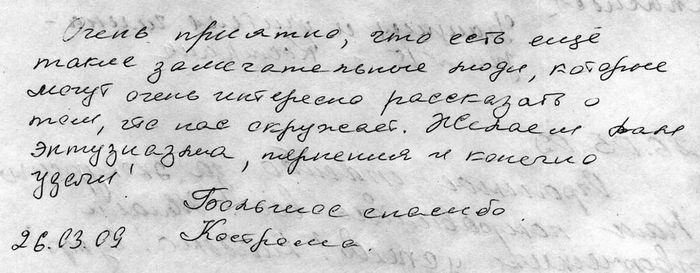 Очень приятно, что есть ещё
такие замечательные люди, которые
могут очень интересно рассказать о
том, что нас окружает. Желаем вам
энтузиазма, терпения и конечно
удачи!
Большое спасибо.
26.03.09 Кострома.